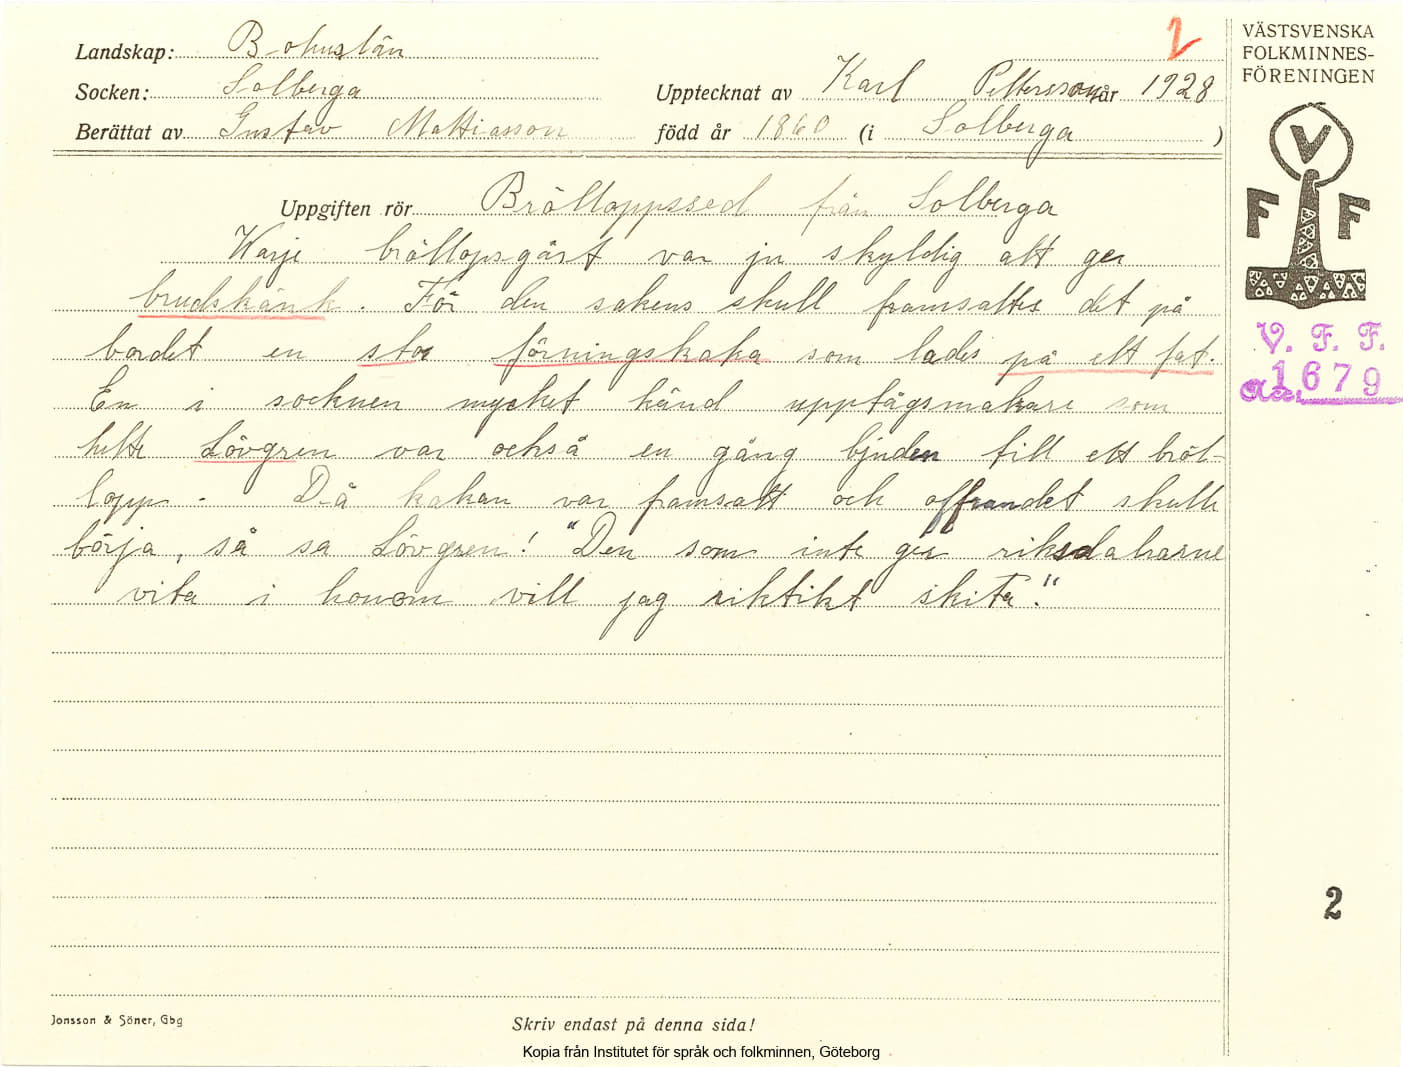 Landskap: Bohuslän
Socken: Solberga
Berättat av Gustav Mattiasson
2
Upptecknat av Karl Pettersson år 1928
född år 1860 (i Solberga )
VÄSTSVENSKA
FOLKMINNES-
FÖRENINGEN
V
F F
V. F. F.
Acc. 1679
Uppgiften rör Brölloppssed från Solberga
Warje bröllopsgäst var ju skyldig att ger
brudskänk. För den sakens skull framsattes det på
bordet en stor förningskaka som lades på ett fat.
En i socknen mycket känd upptågsmakare som
hette Lövgren var också en gång bjuden till ett bröl-
lopp. Då kakan var framsatt och offrandet skulle
börja, så sa Lövgren! "Den som inte ger riksdalrarne
vita i honom vill jag riktikt skita."
2
Jonsson & Söner, Gbg
Skriv endast på denna sida!
Kopia från Institutet för språk och folkminnen, Göteborg